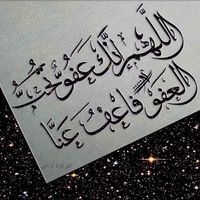 اللَّهُمَّ إِنَّكَ عَفُوٌّ تُحِبُّ
العَفْوَ فَاعْفُ عَنَّا